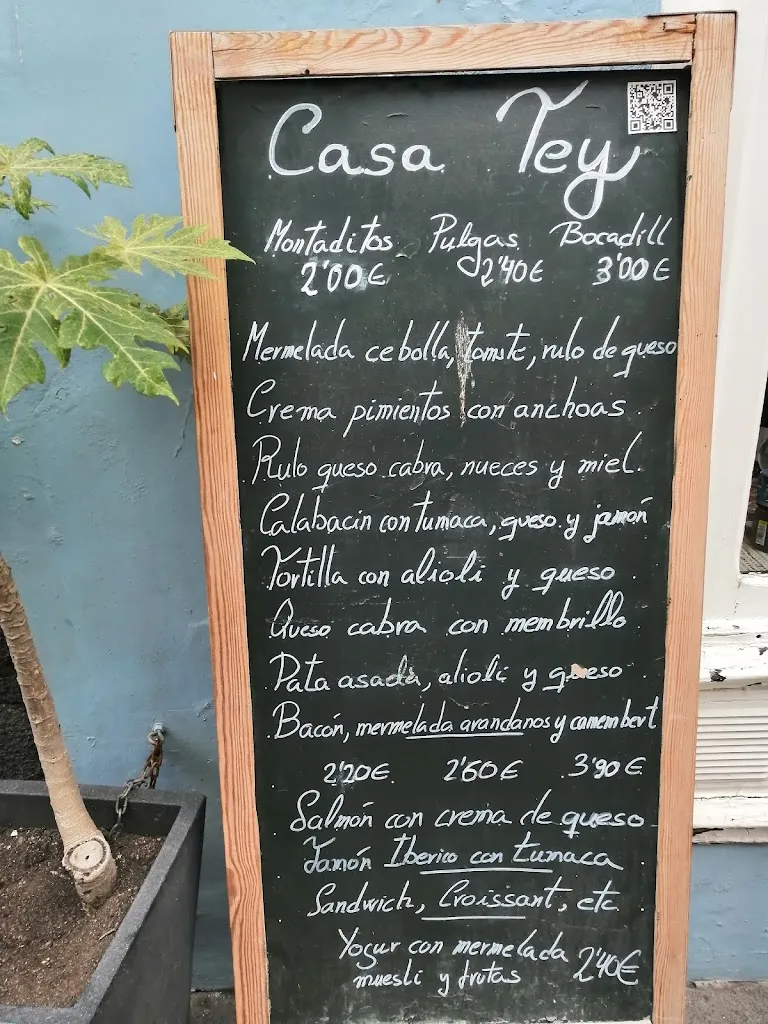 Casa Tey
Montaditos Pulgas Bocadill
2'00€ 2'40€ 3'00€
Mermelada cebolla, tomate, rulo de queso
Crema pimientos con anchoas.
Rulo queso cabra, nueces y miel.
Calabacin con tumaca, queso y jamón
Tortilla con alioli y queso.
Queso cabra con membrillo.
Pata asada, alioli y queso
Bacón, mermelada arandanos y camembert
2'20€. 2'60€ 3'90€.
Salmón con crema de queso
Jamón Iberico con tumaca
Sandwich, Croissant, etc.
Yogur con mermelada
muesli y frutas 2'40€